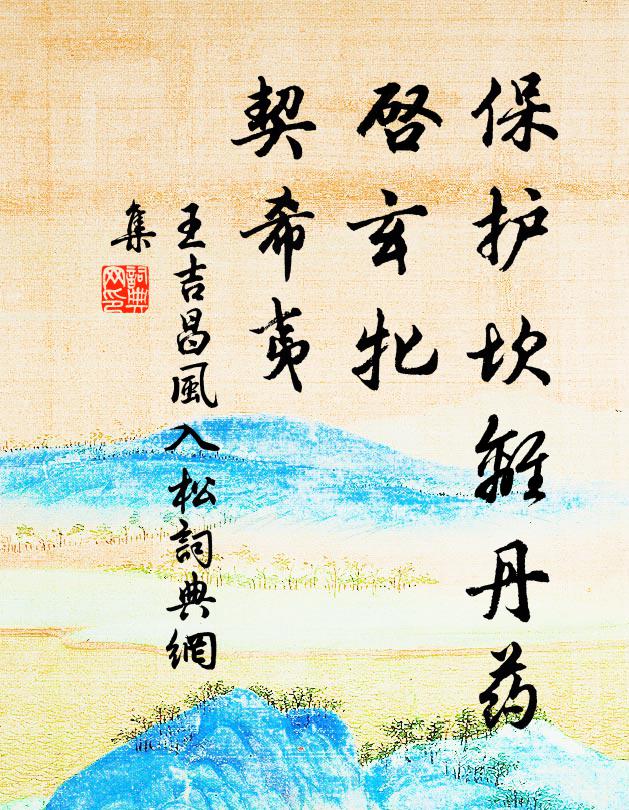 保护坎離丹药
啓玄牝
契希夷
王吉昌風入松詞典網
集
詞典网印